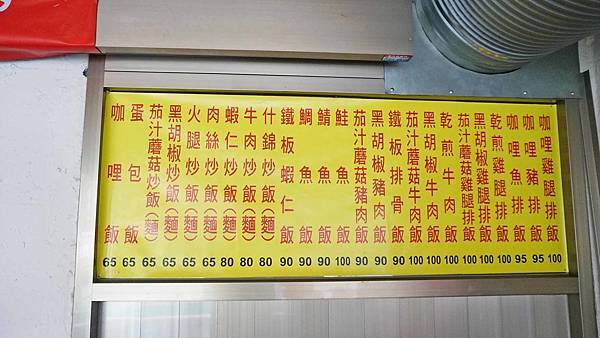 咖哩雞腿排飯 100
咖哩豬排飯 95
咖哩魚排飯 95
乾煎雞腿排飯 100
黑胡椒雞腿排飯 100
茄汁蘑菇雞腿排飯 100
乾煎牛肉飯 100
黑胡椒牛肉飯 100
茄汁蘑菇牛肉飯 100
鐵板排骨飯 90
黑胡椒豬肉飯 90
茄汁蘑菇豬肉飯 90
鮭魚飯 100
鯖魚飯 90
鯛魚飯 90
鐵板蝦仁飯 90
什錦炒飯(麵) 80
牛肉炒飯(麵) 80
蝦仁炒飯(麵) 80
肉絲炒飯(麵) 65
火腿炒飯(麵) 65
黑胡椒炒飯(麵) 65
茄汁蘑菇炒飯(麵) 65
蛋包飯 65
咖哩飯 65